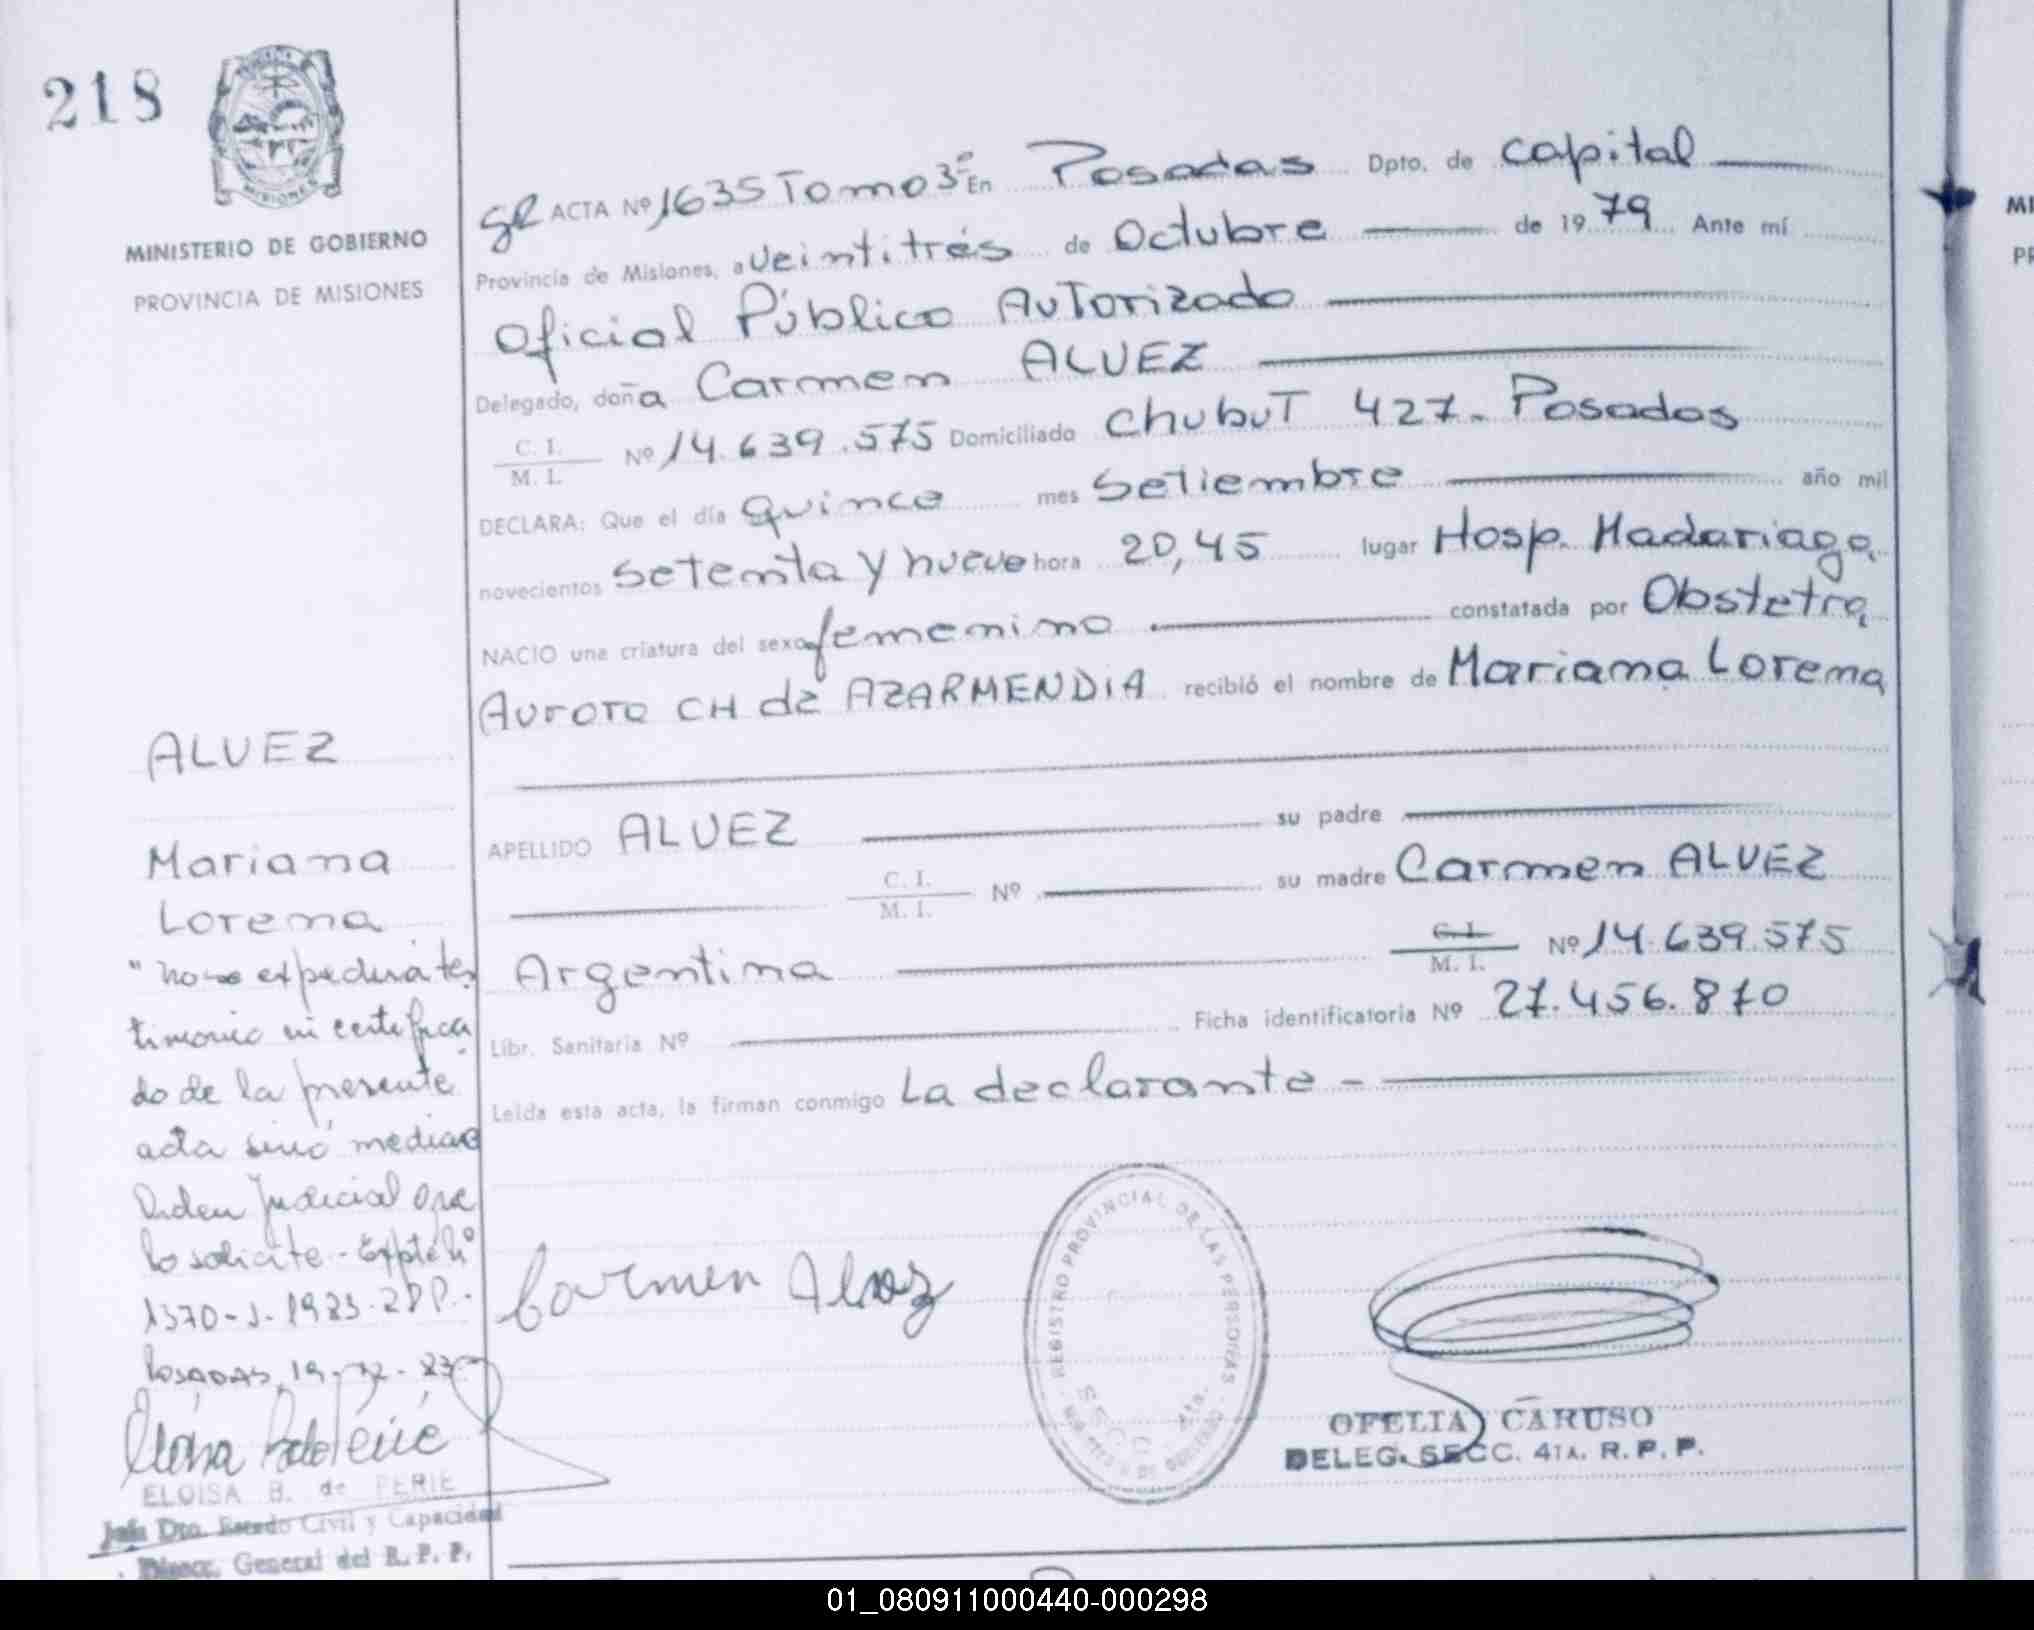 218
MINISTERIO DE GOBIERNO
PROVINCIA DE MISIONES
ACTA Nº 1635 Tomo 3º En Posadas Dpto. de Capital
Provincia de Misiones, a veintitrés de Octubre de 1979 Ante mí
Oficial Público Autorizado
Delegado, doña Carmen ALVEZ
C. I.
M. I. Nº 14.639.575 Domiciliado Chubut 427. Posadas
DECLARA: Que el día quince mes Setiembre año mil
novecientos setenta y nueve hora 20,45 lugar Hosp. Madariaga
NACIO una criatura del sexo femenino constatada por Obstetra
Aurora CH de AZARMENDIA recibió el nombre de Mariana Lorena
APELLIDO ALVEZ su padre
C. I.
M. I. Nº su madre Carmen ALVEZ
Argentina C. I.
M. I. Nº 14.639.575
Libr. Sanitaria Nº Ficha identificatoria Nº 27.456.870
Leída esta acta, la firman conmigo La declarante -
Carmen Alvez
REGISTRO PROVINCIAL DE LAS PERSONAS
SECC. 4ta.
OFELIA CARUSO
DELEG. SECC. 4TA. R. P. P.
ALVEZ
Mariana
Lorena
"no se expedirá tes
timonio ni certifica
do de la presente
acta sinó median
Orden Judicial que
lo solicite - Expte Nº
1370-J-1983
Posadas, 19-12-83
ELOISA B. de PERIE
Jefa Dto. Estado Civil y Capacidad
Direcc. General del R. P. P.
01_080911000440-000298